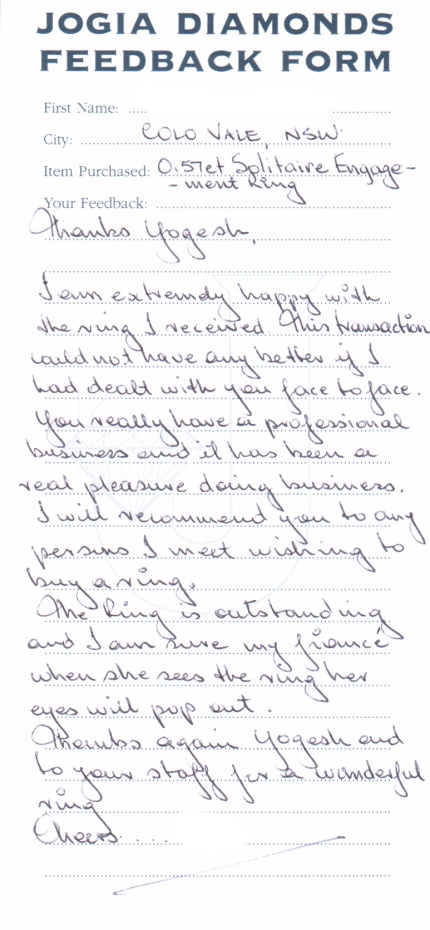 JOGIA DIAMONDS
FEEDBACK FORM
First Name:
City: COLO VALE, NSW.
Item Purchased: 0.57ct Solitaire Engage-
-ment Ring
Your Feedback:
Thanks Yogesh,
I am extremely happy with
the ring I received. This transaction
could not have any better if I
had dealt with you face to face.
You really have a professional
business and it has been a
real pleasure doing business.
I will recommend you to any
persons I meet wishing to
buy a ring.
The Ring is outstanding
and I am sure my fiancé
when she sees the ring her
eyes will pop out.
Thanks again Yogesh and
to your staff for a wonderful
ring
Cheers ...